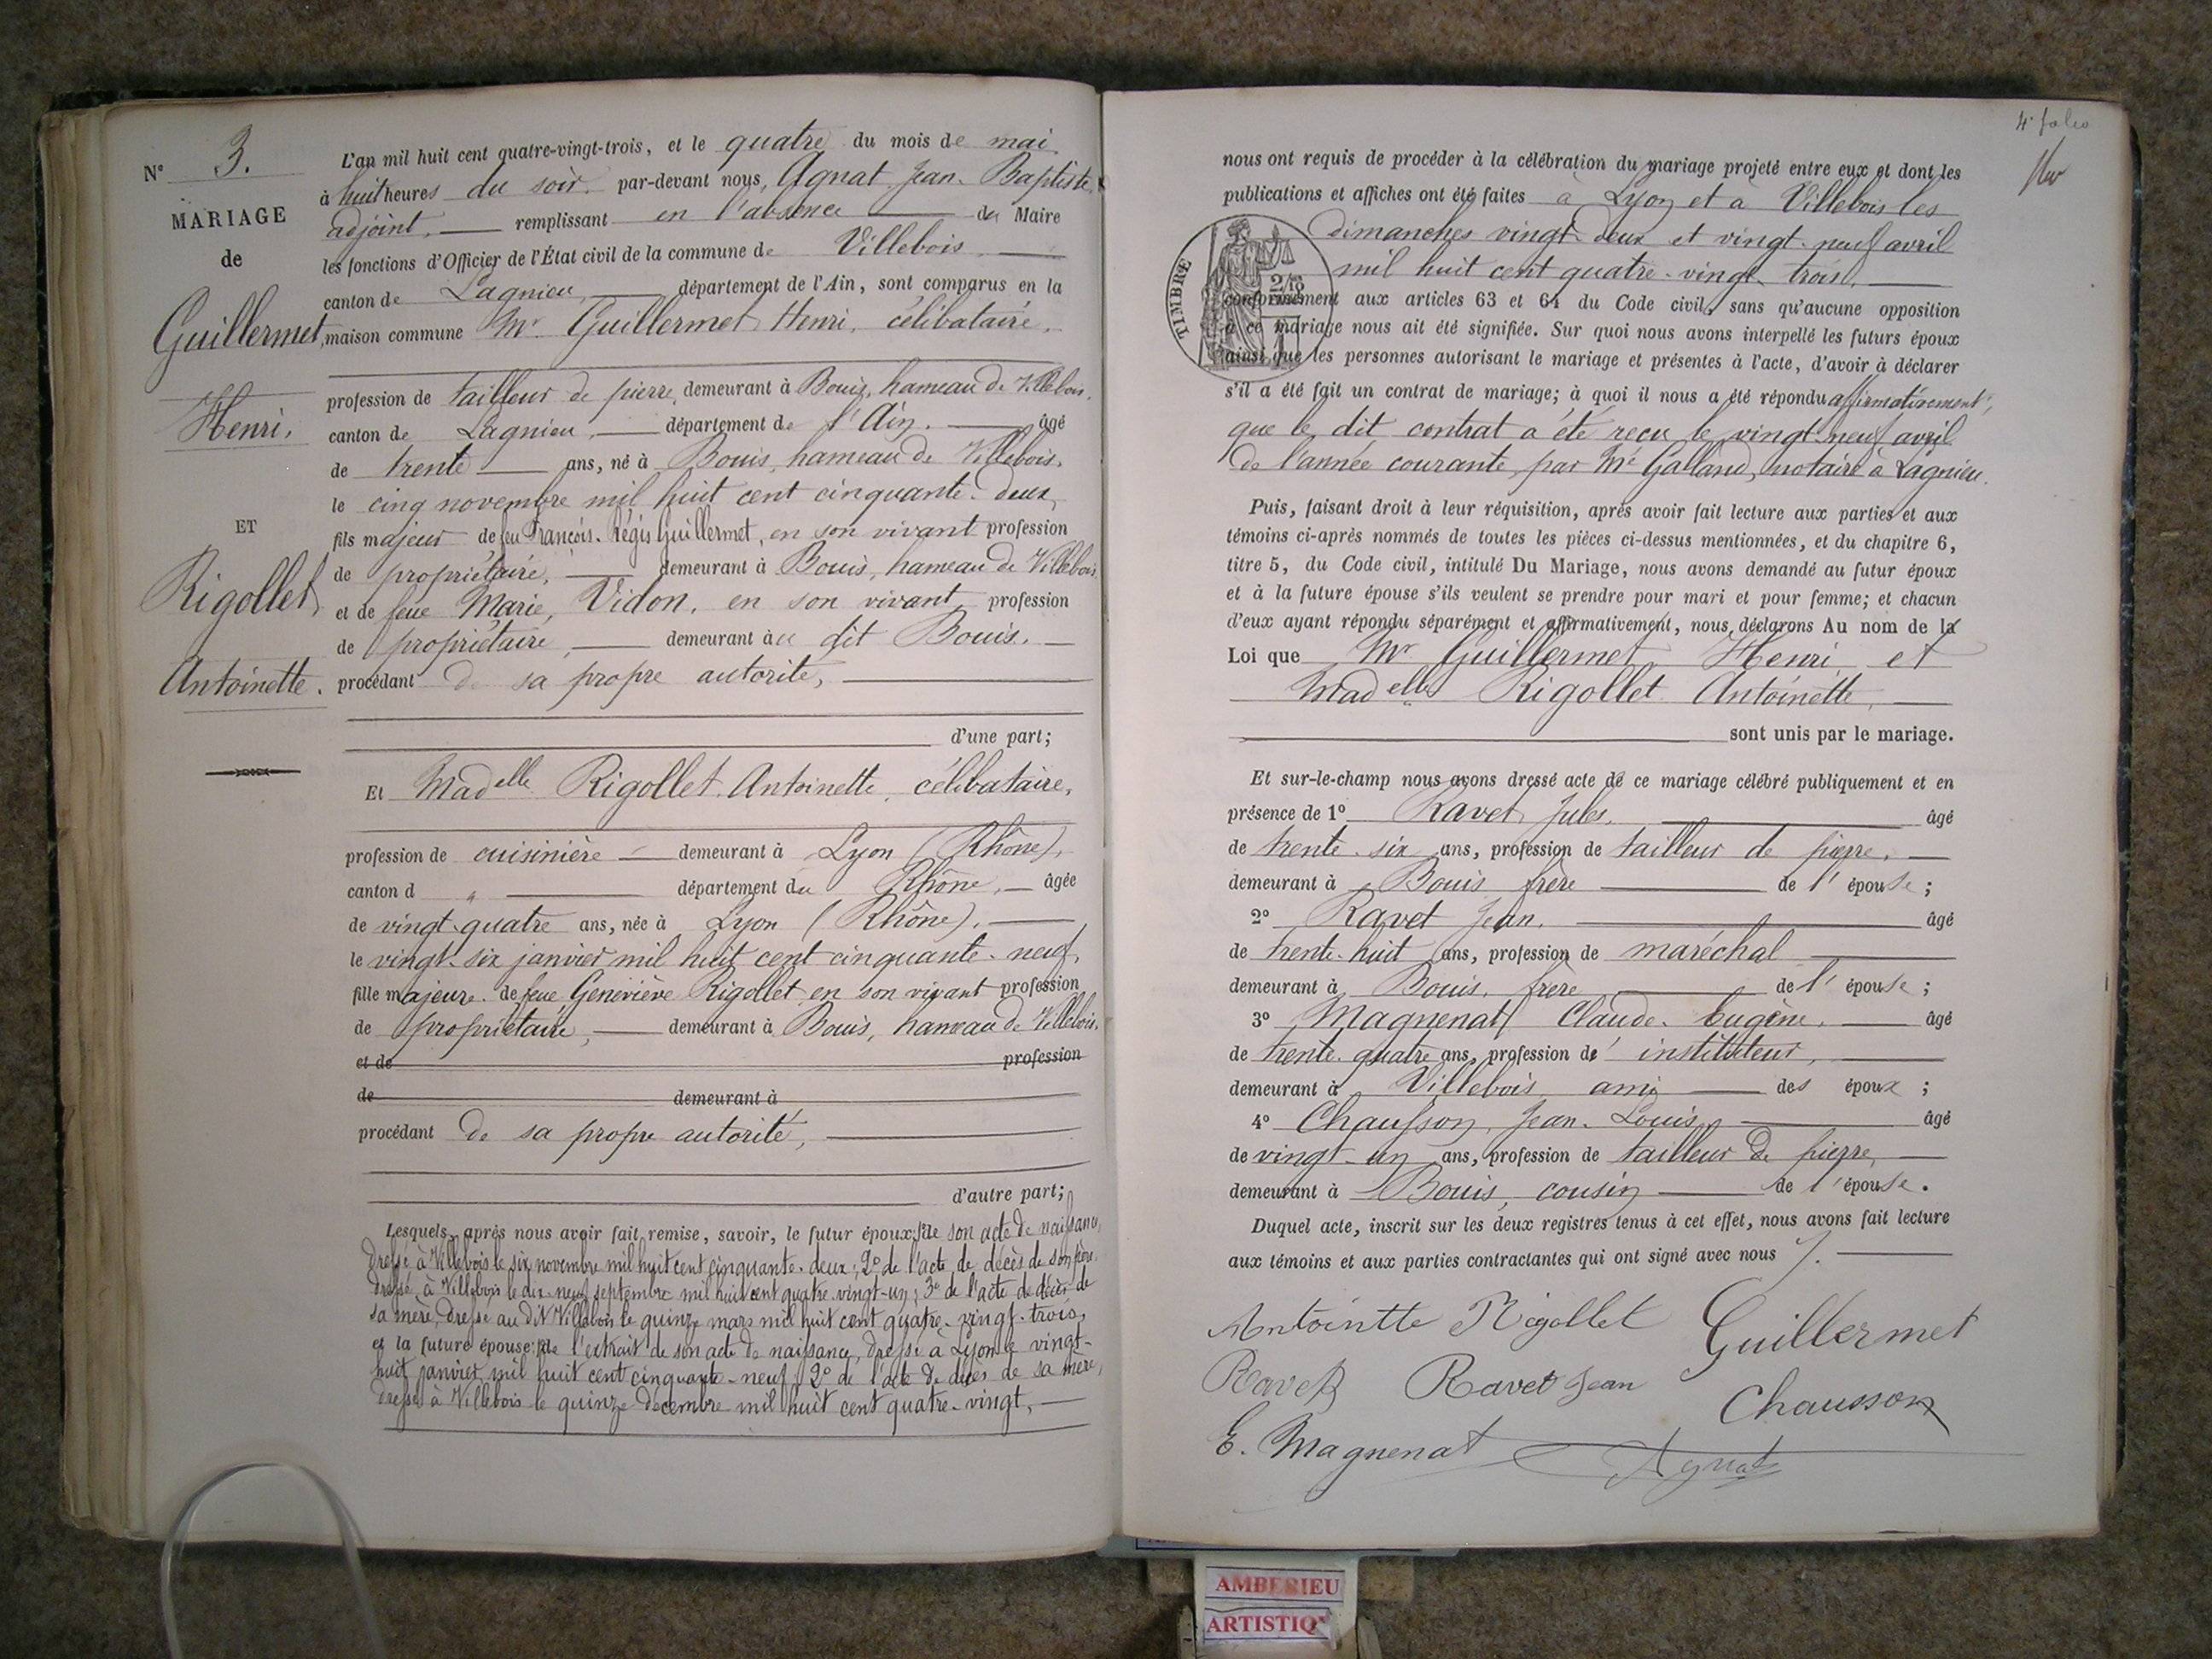 N° 3.
MARIAGE
de
Guillermet
Henri,
ET
Rigollet
Antoinette.
L'an mil huit cent quatre-vingt-trois, et le quatre du mois de mai
à huit heures du soir par-devant nous, Agnat Jean-Baptiste,
adjoint, remplissant en l'absence du Maire
les fonctions d'Officier de l'État civil de la commune de Villebois
canton de Lagnieu, département de l'Ain, sont comparus en la
maison commune Mr Guillermet Henri, célibataire,
profession de tailleur de pierre, demeurant à Bouis, hameau de Villebois,
canton de Lagnieu, département de l'Ain. âgé
de trente ans, né à Bouis, hameau de Villebois,
le cinq novembre mil huit cent cinquante-deux,
fils majeur de feu François-Régis Guillermet, en son vivant profession
de propriétaire, demeurant à Bouis, hameau de Villebois
et de feue Marie, Vidon, en son vivant profession
de propriétaire, demeurant au dit Bouis.
procédant de sa propre autorité,
d'une part;
Et Madelle Rigollet Antoinette, célibataire,
profession de cuisinière demeurant à Lyon (Rhône),
canton d " département du Rhône, âgée
de vingt-quatre ans, née à Lyon (Rhône),
le vingt-six janvier mil huit cent cinquante-neuf,
fille majeure de feue Geneviève Rigollet en son vivant profession
de propriétaire, demeurant à Bouis, hameau de Villebois,
et de profession
de demeurant à
procédant de sa propre autorité,
d'autre part;
Lesquels, après nous avoir fait remise, savoir, le futur époux: 1° de son acte de naissance,
dressé à Villebois le six novembre mil huit cent cinquante-deux; 2° de l'acte de décès de son père
dressé à Villebois le dix-neuf septembre mil huit cent quatre-vingt-un; 3° de l'acte de décès de
sa mère, dressé au dit Villebois le quinze mars mil huit cent quatre-vingt-trois,
et la future épouse: 1° de l'extrait de son acte de naissance, dressé à Lyon le vingt-
huit janvier mil huit cent cinquante-neuf; 2° de l'acte de décès de sa mère,
dressé à Villebois le quinze décembre mil huit cent quatre-vingt,
4e folio
nous ont requis de procéder à la célébration du mariage projeté entre eux et dont les
publications et affiches ont été faites à Lyon et à Villebois les
dimanches vingt-deux et vingt-neuf avril
mil huit cent quatre-vingt-trois,
TIMBRE
conformément aux articles 63 et 64 du Code civil, sans qu'aucune opposition
à ce mariage nous ait été signifiée. Sur quoi nous avons interpellé les futurs époux
ainsi que les personnes autorisant le mariage et présentes à l'acte, d'avoir à déclarer
s'il a été fait un contrat de mariage; à quoi il nous a été répondu affirmativement,
que le dit contrat a été reçu le vingt-neuf avril
de l'année courante, par Me Galland, notaire à Lagnieu.
Puis, faisant droit à leur réquisition, après avoir fait lecture aux parties et aux
témoins ci-après nommés de toutes les pièces ci-dessus mentionnées, et du chapitre 6,
titre 5, du Code civil, intitulé Du Mariage, nous avons demandé au futur époux
et à la future épouse s'ils veulent se prendre pour mari et pour femme; et chacun
d'eux ayant répondu séparément et affirmativement, nous déclarons Au nom de la
Loi que Mr Guillermet Henri et
Madelle Rigollet Antoinette,
sont unis par le mariage.
Et sur-le-champ nous avons dressé acte de ce mariage célébré publiquement et en
présence de 1° Ravet Jules, âgé
de trente-six ans, profession de tailleur de pierre,
demeurant à Bouis frère de l'épouse;
2° Ravet Jean, âgé
de trente-huit ans, profession de maréchal
demeurant à Bouis, frère de l'épouse;
3° Magnenat Claude-Eugène, âgé
de trente-quatre ans, profession d' instituteur,
demeurant à Villebois ami des époux;
4° Chausson, Jean-Louis âgé
de vingt-un ans, profession de tailleur de pierre,
demeurant à Bouis, cousin de l'épouse.
Duquel acte, inscrit sur les deux registres tenus à cet effet, nous avons fait lecture
aux témoins et aux parties contractantes qui ont signé avec nous
Antointte Rigollet Guillermet
Ravet Ravet Jean Chausson
E. Magnenat Agnat
AMBERIEU
ARTISTIQ